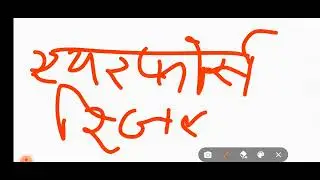 एयरफोर्स
रिजर